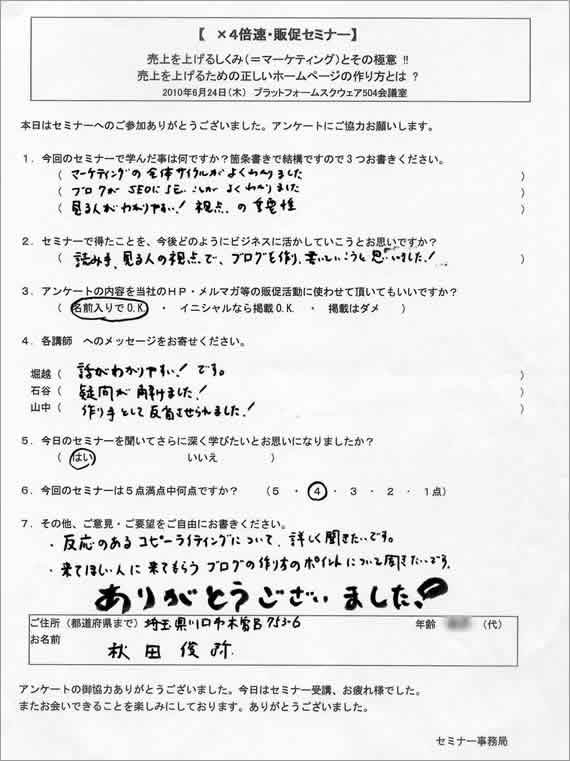 【 ×4倍速・販促セミナー】
売上を上げるしくみ（＝マーケティング）とその極意 !!
売上を上げるための正しいホームページの作り方とは ?
2010年6月24日（木） プラットフォームスクウェア504会議室
本日はセミナーへのご参加ありがとうございました。アンケートにご協力お願いします。
1．今回のセミナーで学んだ事は何ですか？箇条書きで結構ですので3つお書きください。
（ マーケティングの全体サイクルがよくわかりました ）
（ ブログがSEOに よくわかりました ）
（ 見る人がわかりやすい！視点、の重要性 ）
2．セミナーで得たことを、今後どのようにビジネスに活かしていこうとお思いですか？
（ 読み手、見る人の視点で、ブログを作り、書いていこうと思いました！ ）
3．アンケートの内容を当社のHP・メルマガ等の販促活動に使わせて頂いてもいいですか？
（ 名前入りでO.K. ・ イニシャルなら掲載O.K. ・ 掲載はダメ ）
4．各講師 へのメッセージをお寄せください。
堀越（ 話がわかりやすい！です。 ）
石谷（ 疑問が解けました！ ）
山中（ 作り手として反省させられました！ ）
5．今日のセミナーを聞いてさらに深く学びたいとお思いになりましたか？
（ はい いいえ ）
6．今回のセミナーは5点満点中何点ですか？ （5 ・ 4 ・ 3 ・ 2 ・ 1点）
7．その他、ご意見・ご要望をご自由にお書きください。
・反応のあるコピーライティングについて、詳しく聞きたいです。
・来てほしい人に来てもらうブログの作り方のポイントについて聞きたいです。
ありがとうございました！
ご住所（都道府県まで）埼玉県川口市木曽呂753-6 年齢 （代）
お名前
秋田俊弥
アンケートの御協力ありがとうございました。今日はセミナー受講、お疲れ様でした。
またお会いできることを楽しみにしております。ありがとうございました。
セミナー事務局